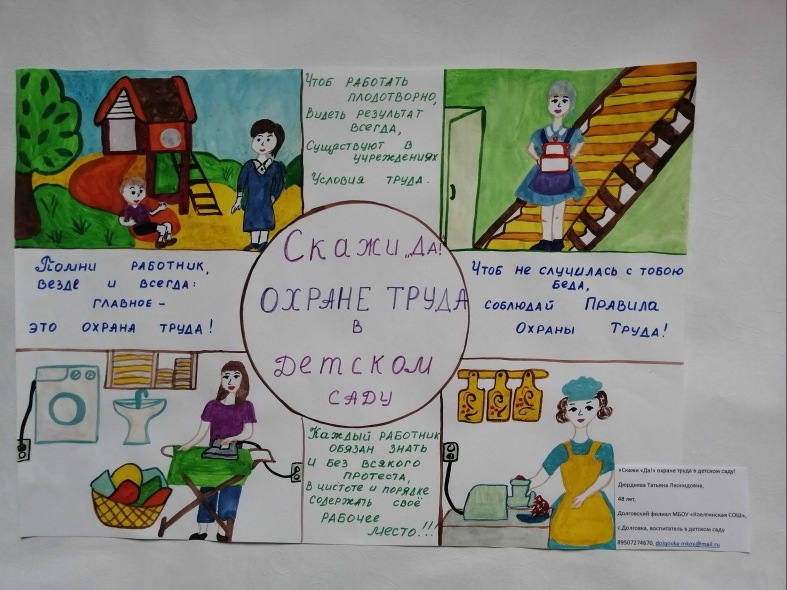 Чтоб работать
плодотворно,
Видеть результат
всегда,
Существуют в
учреждениях
Условия труда.
Помни работник,
везде и всегда:
главное –
это охрана труда!
Скажи „Да!
охране труда
в
детском
саду
Чтоб не случилась с тобою
беда,
соблюдай Правила
Охраны Труда!
Каждый работник
обязан знать
и без всякого
протеста,
в чистоте и порядке
содержать своё
рабочее
место!!!
«Скажи «Да!» охране труда в детском саду!
Дюрдеева Татьяна Леонидовна,
48 лет,
Долговский филиал МБОУ «Коелгинская СОШ»,
с.Долговка, воспитатель в детском саду
89507274670, dolgovka-mkou@mail.ru